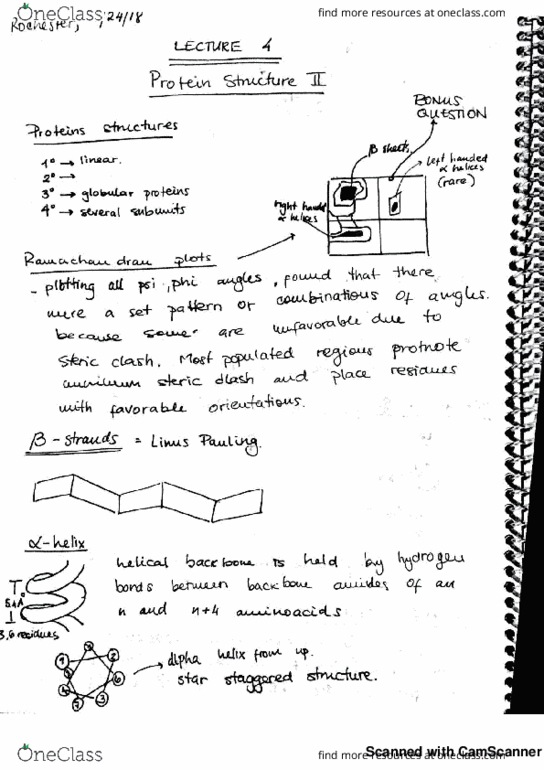 OneClass
find more resources at oneclass.com
Rochester, , 24/18
find more resources at oneclass.com
LECTURE 4
Protein Structure II
BONUS
QUESTION
Proteins structures
β sheets
1° → linear.
2° →
3° → globular proteins
4° → several subunits
Left handed
α helices
(rare)
right handed
α helices
Ramachandran plots
- plotting all psi, phi angles, found that there
were a set pattern or combinations of angles.
because some are unfavorable due to
steric clash. Most populated regions
steric clash and place residues
with favorable orientations.
β-strands = Linus Pauling.
α-helix
helical backbone is held by hydrogen
bonds between backbone amides of an
n and n+4 aminoacids
5.4 Å
3,6 residues
1
2
3
5
6
alpha helix from up.
star staggered structure.
Scanned with CamScanner
OneClass
find more resources at oneclass.com